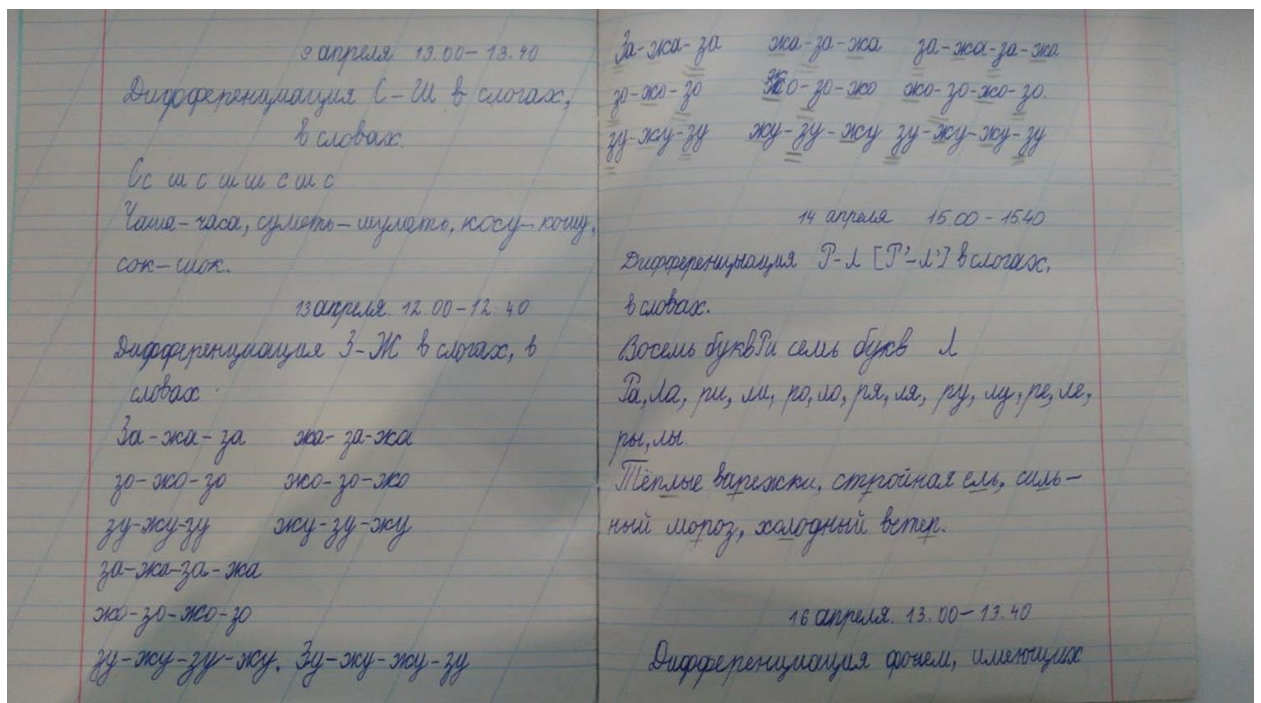 9 апреля 13.00-13.40
Дифференциация С-Ш в слогах,
в словах.
Сс ш с ш ш с ш с
Чаша-часа, суметь-шуметь, косу-кошу,
сок-шок.
13 апреля. 12.00-12.40
Дифференциация З-Ж в слогах, в
словах.
За-жа-за жа-за-жа
зо-жо-зо жо-зо-жо
зу-жу-зу жу-зу-жу
за-жа-за-жа
жо-зо-жо-зо
зу-жу-зу-жу. Зу-жу-жу-зу
За-жа-за жа-за-жа за-жа-за-жа
зо-жо-зо Жо-зо-жо жо-зо-жо-зо.
зу-жу-зу жу-зу-жу зу-жу-жу-зу
14 апреля 15.00-15.40
Дифференцыация Р-Л [Р'-Л'] в слогах,
в словах.
Восемь букв Р и семь букв Л
Ра, Ла, ри, ли, ро, ло, ря, ля, ру, лу, ре, ле,
ры, лы.
Тёплые варежки, стройная ель, силь-
ный мороз, холодный ветер.
16 апреля. 13.00-13.40
Дифференциация фонем, имеющих